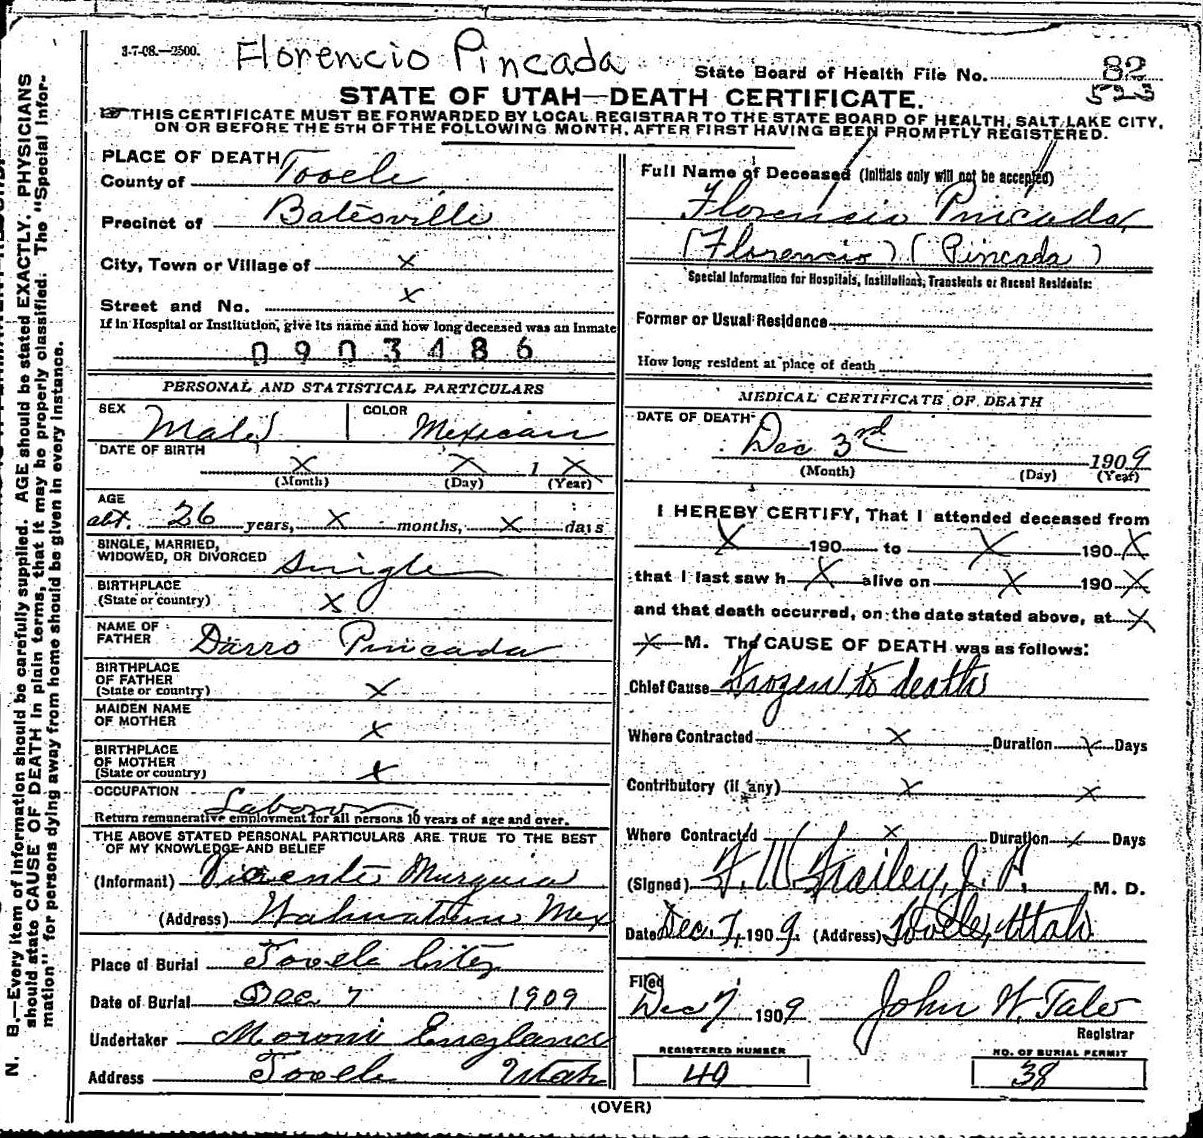 3-7-08.—2500.
Florencio Pincada
State Board of Health File No. 82
523
STATE OF UTAH—DEATH CERTIFICATE.
THIS CERTIFICATE MUST BE FORWARDED BY LOCAL REGISTRAR TO THE STATE BOARD OF HEALTH, SALT LAKE CITY,
ON OR BEFORE THE 5TH OF THE FOLLOWING MONTH, AFTER FIRST HAVING BEEN PROMPTLY REGISTERED.
PLACE OF DEATH
County of Tooele
Precinct of Batesville
City, Town or Village of x
Street and No. x
If in Hospital or Institution, give its name and how long deceased was an Inmate
0903486
PERSONAL AND STATISTICAL PARTICULARS
SEX Male COLOR Mexican
DATE OF BIRTH
x x 1 x
(Month) (Day) (Year)
AGE
abt. 26 years, x months, x days
SINGLE, MARRIED,
WIDOWED, OR DIVORCED Single
BIRTHPLACE
(State or country) x
NAME OF
FATHER Darro Pincada
BIRTHPLACE
OF FATHER
(State or country) x
MAIDEN NAME
OF MOTHER x
BIRTHPLACE
OF MOTHER
(State or country) x
OCCUPATION Laboror
Return remunerative employment for all persons 10 years of age and over.
THE ABOVE STATED PERSONAL PARTICULARS ARE TRUE TO THE BEST
OF MY KNOWLEDGE AND BELIEF
(Informant) Vicente Murguia
(Address) Mex
Place of Burial Tooele City
Date of Burial Dec 7 1909
Undertaker Moroni England
Address Tooele Utah
Full Name of Deceased (Initials only will not be accepted)
Florencio Pincada
(Florencio) (Pincada)
Special Information for Hospitals, Institutions, Transients or Recent Residents:
Former or Usual Residence
How long resident at place of death
MEDICAL CERTIFICATE OF DEATH
DATE OF DEATH
Dec 3rd 1909
(Month) (Day) (Year)
I HEREBY CERTIFY, That I attended deceased from
x 190 to x 190 x
that I last saw h x alive on x 190 x
and that death occurred, on the date stated above, at x
x M. The CAUSE OF DEATH was as follows:
Chief Cause Frozen to death
Where Contracted x Duration x Days
Contributory (if any) x x
Where Contracted x Duration x Days
(Signed) F. W Frailey, J. P. M. D.
Date Dec. 7, 1909. (Address) Tooele, Utah
Filed
Dec 7 1909 John W. Tate
Registrar
REGISTERED NUMBER
40
NO. OF BURIAL PERMIT
38
(OVER)
N. B.—Every item of information should be carefully supplied. AGE should be stated EXACTLY. PHYSICIANS
should state CAUSE OF DEATH in plain terms, that it may be properly classified. The "Special Infor-
mation" for persons dying away from home should be given in every instance.